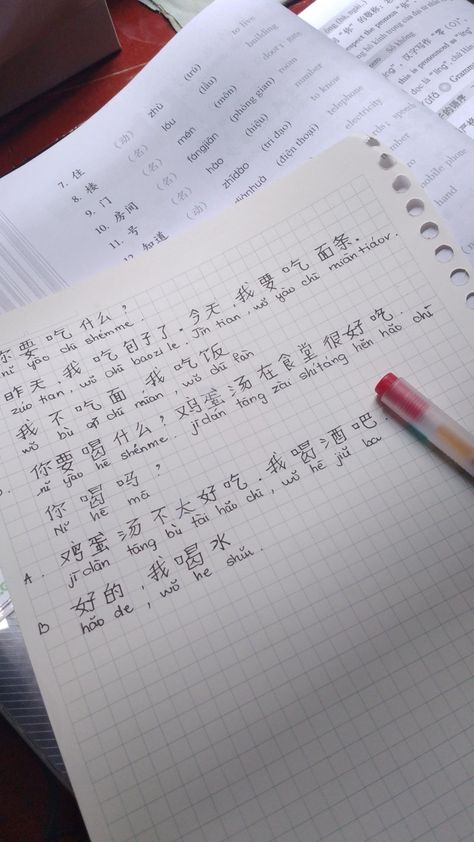 to live
building
door, gate
room
number
to know
telephone
electricity
7. 住 (动) zhù (trú)
8. 楼 (名) lóu (lầu)
9. 门 (名) mén (môn)
10. 房间 (名) fángjiān (phòng gian)
11. 号 (名) hào (hiệu)
12. 知道 (动) zhīdào (tri đạo)
(điện thoại)
mobile phone
你要吃什么?
nǐ yào chī shénme.
昨天,我吃包子了.今天,我要吃面条.
zuó tian, wǒ chī baozi le. Jīn tian, wǒ yào chī miàn tiáor.
我不吃面,我吃饭
wǒ bù chī mian, wǒ chī fàn
你要喝什么?鸡蛋汤在食堂很好吃.
nǐ yào hē shénme. jīdàn tāng zài shítáng hěn hǎo chī
你喝吗?
Nǐ hē má
A. 鸡蛋汤不太好吃.我喝酒吧.
jīdàn tāng bù tài hǎo chī, wǒ hē jiǔ ba
B 好的,我喝水
hǎo de, wǒ he shuǐ.